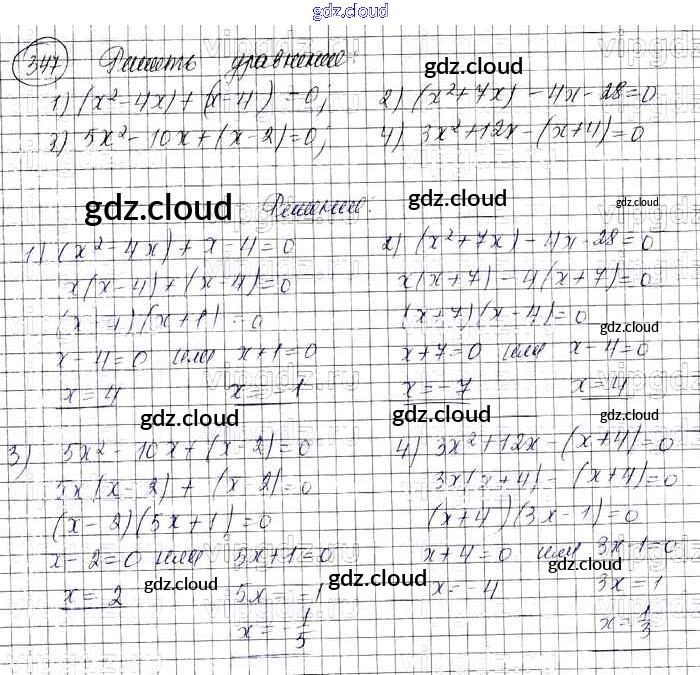 gdz.cloud
347 Решить уравнение:
1) (x² - 4x) + (x - 4) = 0; 2) (x² + 7x) - 4x - 28 = 0
3) 5x² - 10x + (x - 2) = 0; 4) 3x² + 12x - (x + 4) = 0
Решение:
1) (x² - 4x) + x - 4 = 0 2) (x² + 7x) - 4x - 28 = 0
x(x - 4) + (x - 4) = 0 x(x + 7) - 4(x + 7) = 0
(x - 4)(x + 1) = 0 (x + 7)(x - 4) = 0
x - 4 = 0 или x + 1 = 0 x + 7 = 0 или x - 4 = 0
x = 4 x = -1 x = -7 x = 4
3) 5x² - 10x + (x - 2) = 0 4) 3x² + 12x - (x + 4) = 0
5x(x - 2) + (x - 2) = 0 3x(x + 4) - (x + 4) = 0
(x - 2)(5x + 1) = 0 (x + 4)(3x - 1) = 0
x - 2 = 0 или 5x + 1 = 0 x + 4 = 0 или 3x - 1 = 0
x = 2 5x = -1 x = -4 3x = 1
x = -1/5 x = 1/3
gdz.cloud
gdz.cloud
gdz.cloud
gdz.cloud
gdz.cloud
gdz.cloud
gdz.cloud
gdz.cloud
gdz.cloud
gdz.cloud
gdz.cloud
gdz.cloud